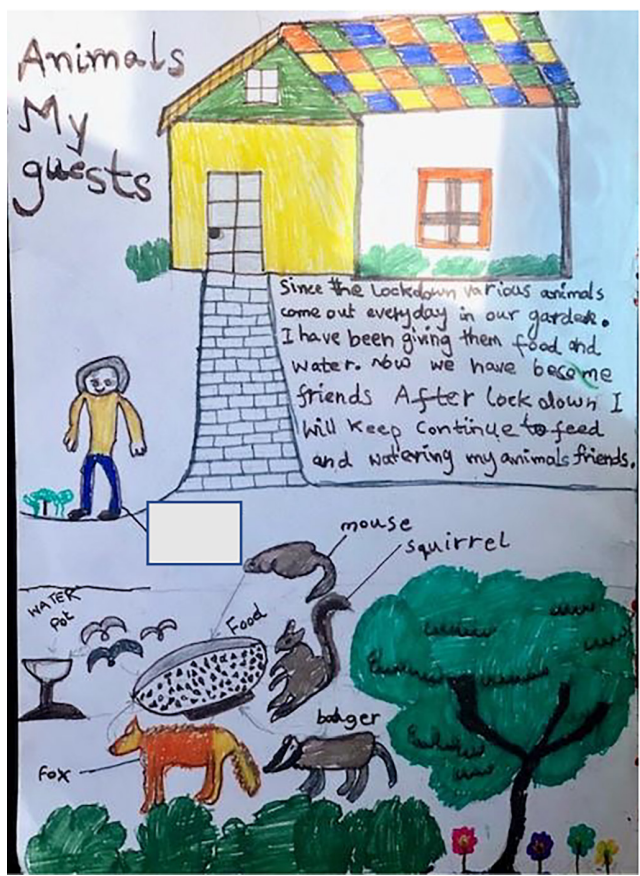 Animals
My
guests
Since the Lockdown various animals
come out everyday in our garden.
I have been giving them food and
water. Now we have become
friends After lockdown I
will keep continue to feed
and watering my animals friends.
mouse
squirrel
WATER
Pot
Food
badger
Fox